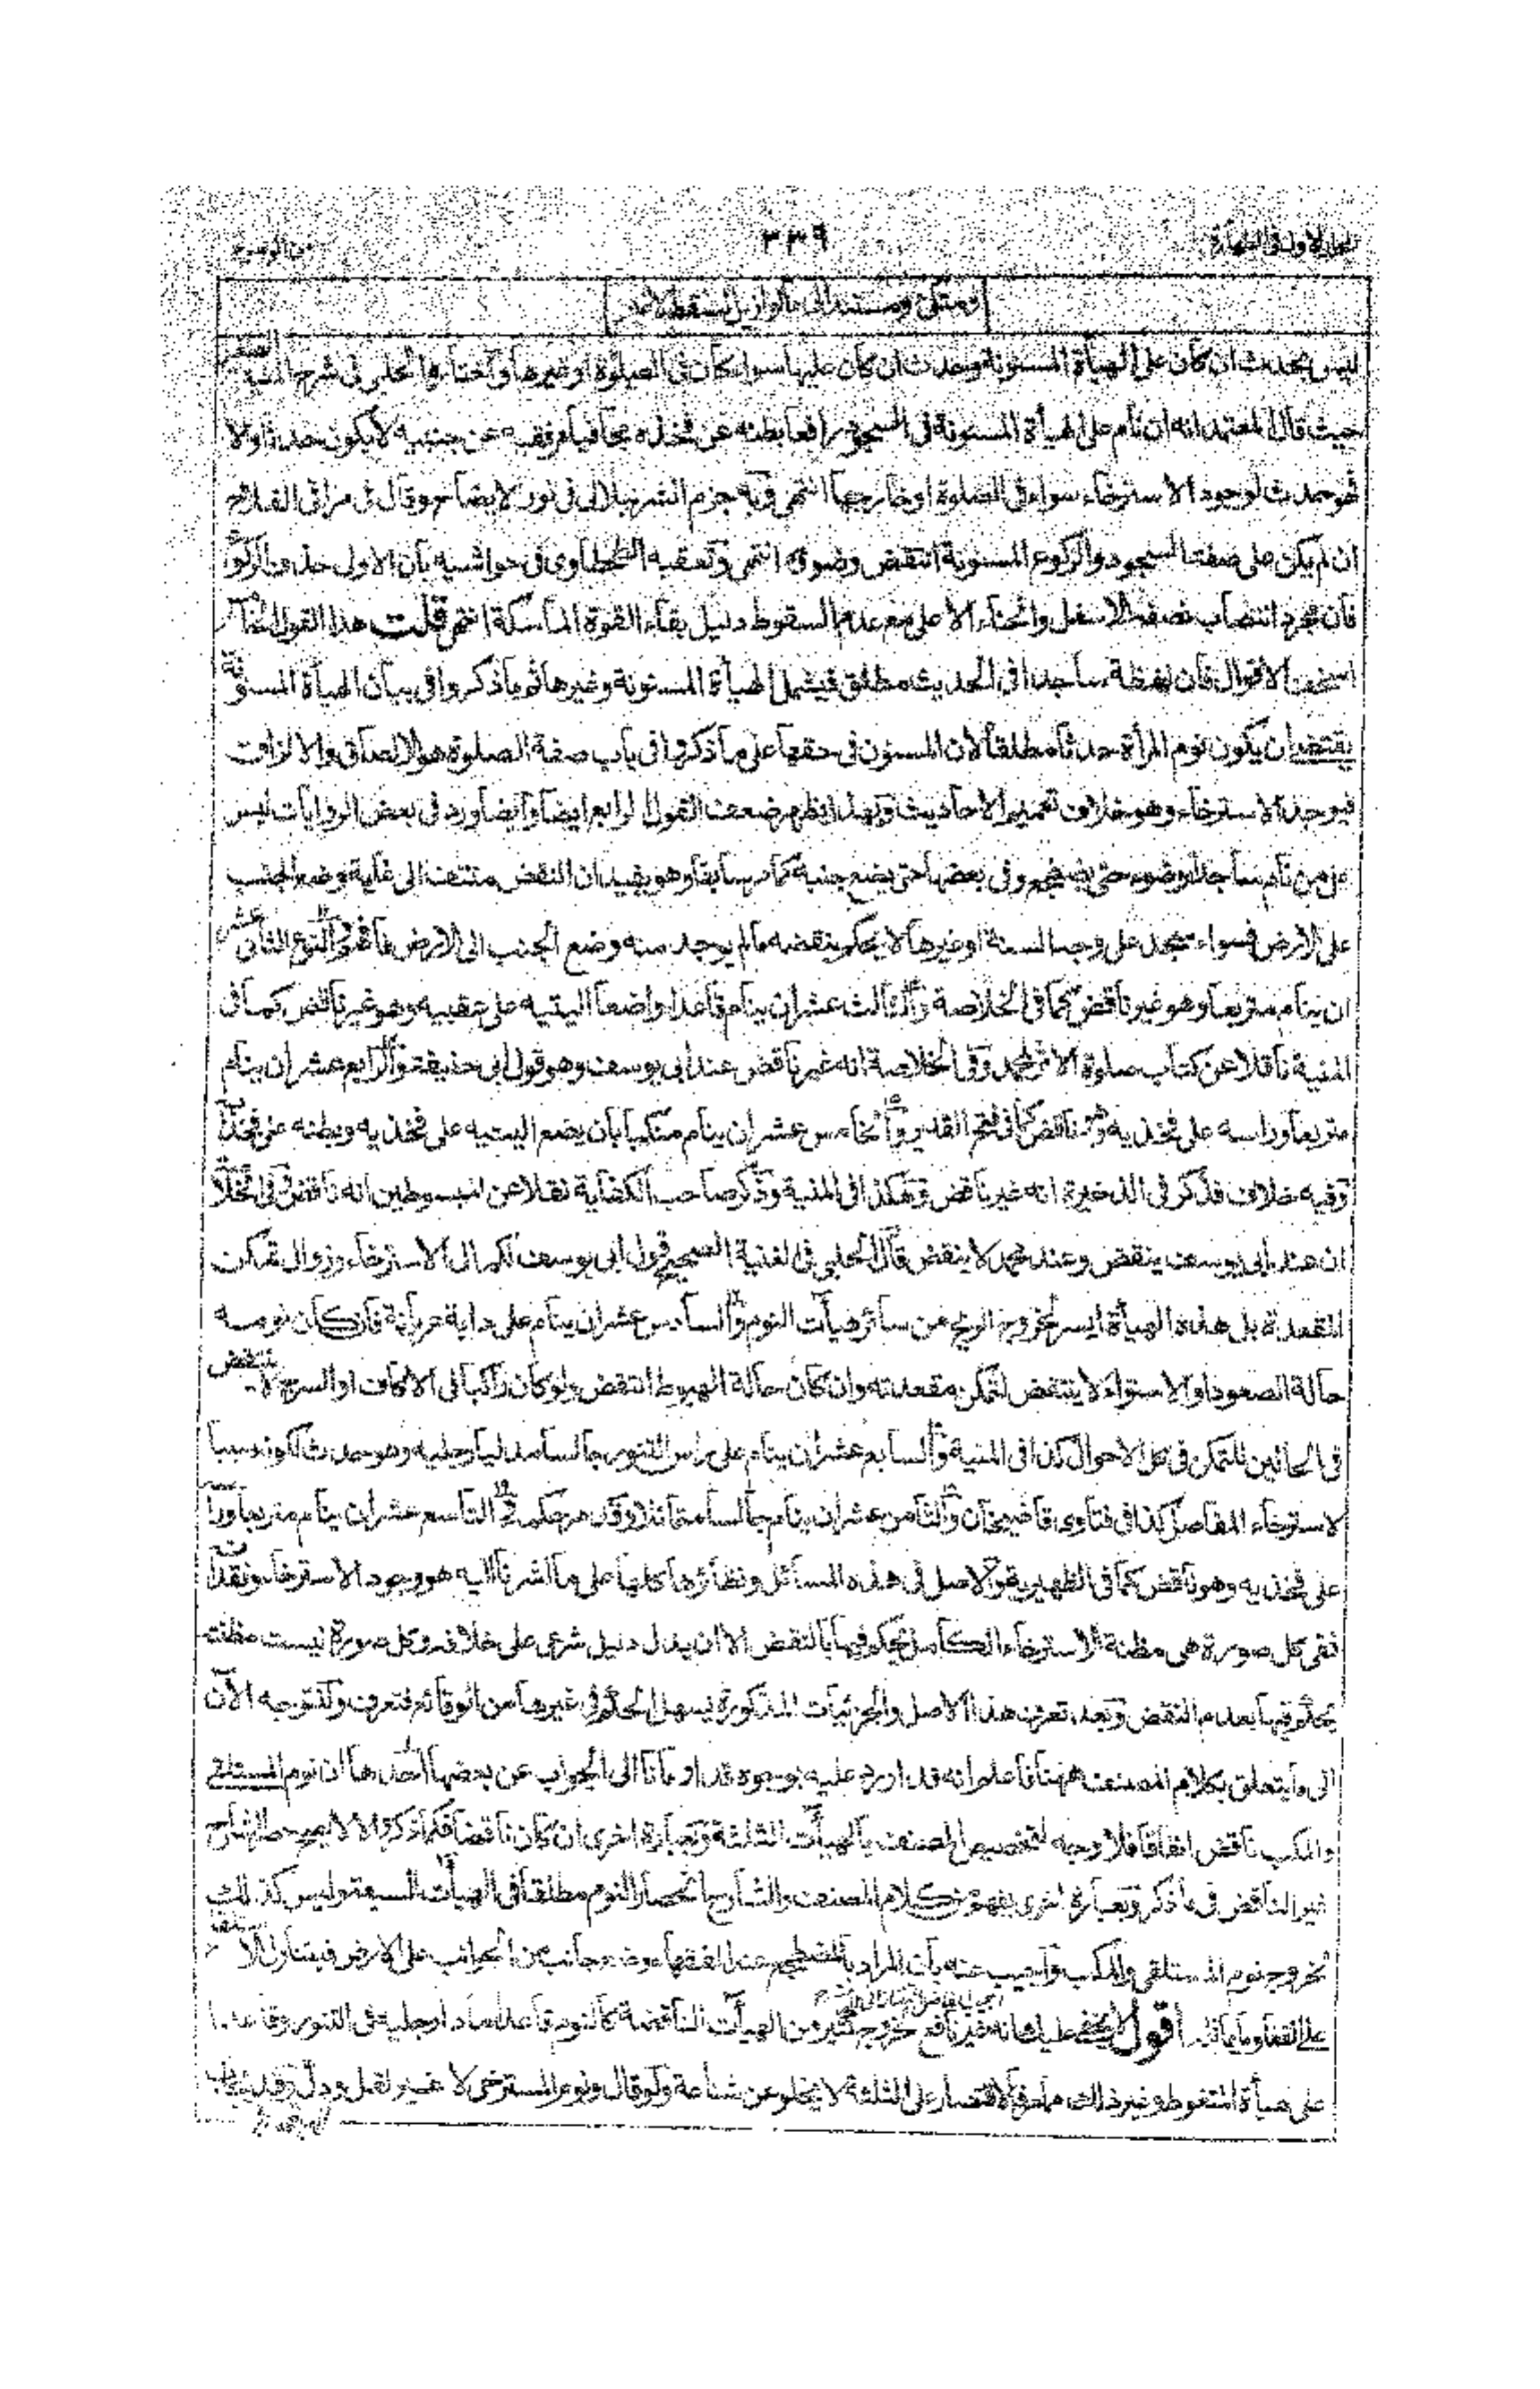 ٣٣٩
او متكئ او مستند الى ما لو ازيل لسقط لا
ليس بحدث ان كان على الهيأة المسنونة وحدث ان كان عليها سواء كان فى الصلوة او غيرها واختاره الحلبى فى شرح المنية
حيث قال المعتمد انه ان نام على الهيأة المسنونة فى السجود رافعا بطنه عن فخذه مجافيا مرفقيه عن جنبيه لا يكون حدثا والا
فهو حدث لوجود الاسترخاء سواء فى الصلوة او خارجها انتهى وبه جزم الشرنبلالى فى نور الايضاح وقال فى مراقى الفلاح
ان لم يكن على صفة السجود والركوع المسنونة انتقض وضوءه انتهى وتعقبه الطحطاوى فى حواشيه بان الاولى حذف الركوع
فان مجرد انتصاب نصفه الاسفل وانحناء الاعلى مع عدم السقوط دليل بقاء القوة الماسكة انتهى قلت هذا القول
اسخف الاقوال فان لفظة ساجدا فى الحديث مطلق فيشمل الهيأة المسنونة وغيرها ثم ما ذكروا فى بيان الهيأة المسنونة
يقتضى ان يكون نوم المرأة حدثا مطلقا لان المسنون فى حقها على ما ذكرها فى باب صفة الصلوة هو الالصاق والالتزاق
فيوجد الاسترخاء وهو خلاف تعميم الاحاديث وبهذا يظهر ضعف القول الرابع ايضا وايضا ورد فى بعض الروايات ليس
على من نام ساجدا وضوء حتى يضطجع وفى بعضها حتى يضع جنبه كما مر سابقا وهو يفيد ان النقض منتف الى غاية وضع الجنب
على الارض فسواء سجد على وجه السنة او غيرها لا يحكم بنقضه ما لم يوجد منه وضع الجنب الى الارض فافهم النوع الثانى عشر
ان ينام متربعا وهو غير ناقض كما فى الخلاصة والثالث عشر ان ينام قاعدا واضعا اليتيه على عقبيه وهو غير ناقض كما فى
المنية ناقلا عن كتاب صلوة الاثر لمحمد وفى الخلاصة انه غير ناقض عند ابى يوسف وهو قول ابى حنيفة والرابع عشر ان ينام
متربعا وراسه على فخذيه وهو ناقض كما فى فتح القدير والخامس عشر ان ينام منكبا بان يضع اليتيه على فخذيه وبطنه على فخذيه
وفيه خلاف فذكر فى الذخيرة انه غير ناقض وهكذا فى المنية وذكر صاحب الكفاية نقلا عن المبسوطين انه ناقض وفى الخلاصة
ان عند ابى يوسف ينقض وعند محمد لا ينقض قال الحلبى فى الغنية الصحيح قول ابى يوسف لكمال الاسترخاء وزوال تمكن
المقعدة بل هذه الهيأة ايسر لخروج الريح من سائر هيآت النوم والسادس عشر ان ينام على دابة عريانة فان كان نومه
حالة الصعود او الاستواء لا ينتقض لتمكن مقعدته وان كان حالة الهبوط انتقض ولو كان راكبا فى الاكاف او السرج لا ينتقض
فى الحالين للتمكن فى كل الاحوال كذا فى المنية والسابع عشر ان ينام على راس التنور جالسا مدليا رجليه وهو حدث لكونه سببا
لاسترخاء المفاصل كذا فى فتاوى قاضيخان والثامن عشر ان ينام جالسا متمائلا وقد مر حكمه التاسع عشر ان ينام متربعا وراسه
على فخذيه وهو ناقض كما فى الظهيرية والاصل فى هذه المسائل ونظائرها كلها على ما اشرنا اليه هو وجود الاسترخاء وفقده
ففى كل صورة هى مظنة الاسترخاء الكامل يحكم فيها بالنقض الا ان يدل دليل شرعى على خلافه وكل صورة ليست مظنته
يحكم فيها بعدم النقض وبعد تعرف هذا الاصل والجزئيات المذكورة يسهل الحكم فى غيرها من الوقائع فتعرف ولنتوجه الآن
الى ما يتعلق بكلام المصنف ههنا فاعلم انه قد اورد عليه بوجوه قد اومأنا الى الجواب عن بعضها احدها ان نوم المستلقى
والمكب ناقض اتفاقا فلا وجه لتخصيص المصنف بالهيآت الثلثة وبعبارة اخرى ان كان ناقضا فلم ذكر والا لا يصح حصر الشارح
غير الناقض فى ما ذكر وبعبارة اخرى يفهم من كلام المصنف والشارح انحصار النوم مطلقا فى الهيآت السبعة وليس كذلك
لخروج نوم المستلقى والمكب واجيب عنه بان المراد بالمضطجع عند الفقهاء وضع جانب من الجوانب على الارض فيتناول
على القفا وما يماثله اقول لا يخفى عليك انه غير نافع لخروج كثير من الهيآت الناقضة كالنوم قاعدا مادا رجليه فى التنور وقاعدا
على هيأة المتغوط وغير ذلك مما مر فالاقتصار على الثلثة لا يخلو عن شناعة ولو قال ونوم المسترخى لا غير لقل ودل وقد يجاب